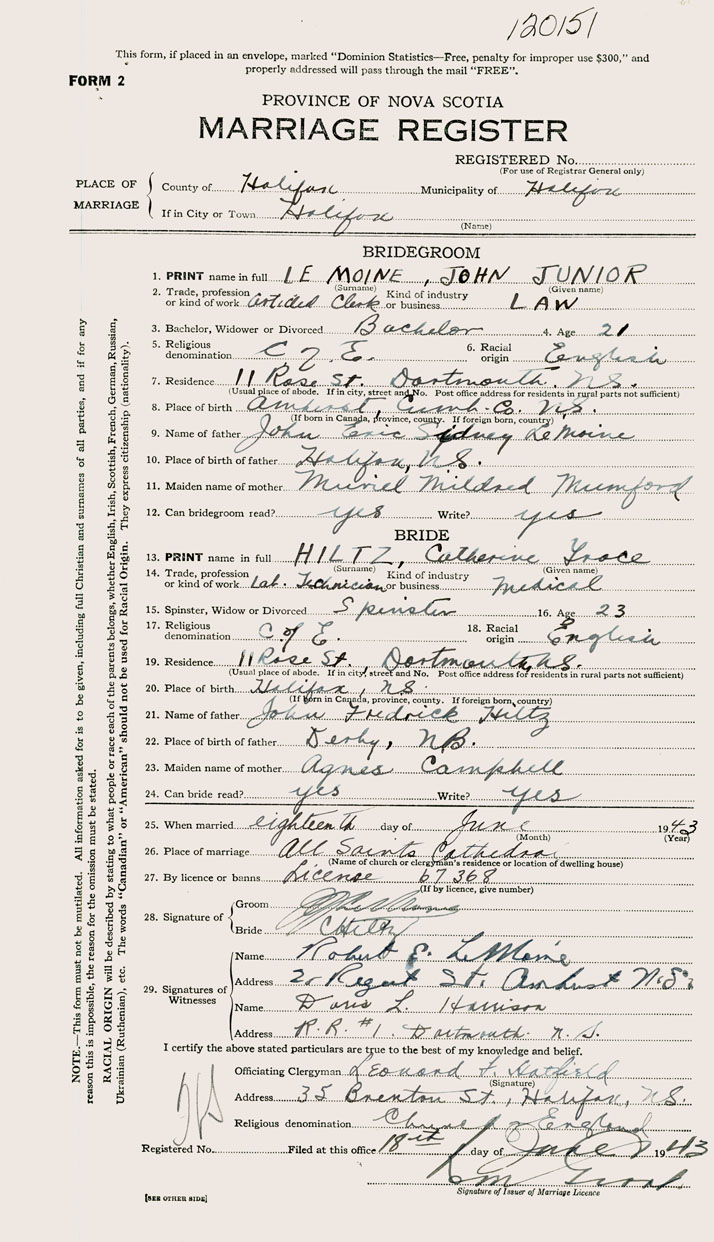 120151
This form, if placed in an envelope, marked "Dominion Statistics—Free, penalty for improper use $300," and
properly addressed will pass through the mail "FREE".
FORM 2
PROVINCE OF NOVA SCOTIA
MARRIAGE REGISTER
REGISTERED No.
(For use of Registrar General only)
PLACE OF MARRIAGE
County of Halifax Municipality of Halifax
If in City or Town Halifax
(Name)
BRIDEGROOM
1. PRINT name in full LE MOINE, JOHN JUNIOR
(Surname) (Given name)
2. Trade, profession or kind of work Articled Clerk Kind of industry or business LAW
3. Bachelor, Widower or Divorced Bachelor 4. Age 21
5. Religious denomination C of E. 6. Racial origin English
7. Residence 11 Rose St. Dartmouth. N.S.
(Usual place of abode. If in city, street and No. Post office address for residents in rural parts not sufficient)
8. Place of birth Amherst, Cumb. Co. N.S.
(If born in Canada, province, county. If foreign born, country)
9. Name of father John Eric Sidney LeMoine
10. Place of birth of father Halifax, N.S.
11. Maiden name of mother Muriel Mildred Mumford
12. Can bridegroom read? yes Write? yes
BRIDE
13. PRINT name in full HILTZ, Catherine Grace
(Surname) (Given name)
14. Trade, profession or kind of work Lab. Technician Kind of industry or business Medical
15. Spinster, Widow or Divorced Spinster 16. Age 23
17. Religious denomination C of E. 18. Racial origin English
19. Residence 11 Rose St., Dartmouth, N.S.
(Usual place of abode. If in city, street and No. Post office address for residents in rural parts not sufficient)
20. Place of birth Halifax, N.S.
(If born in Canada, province, county. If foreign born, country)
21. Name of father John Fredrick Hiltz
22. Place of birth of father Derby, N.B.
23. Maiden name of mother Agnes Campbell
24. Can bride read? yes Write? yes
25. When married eighteenth day of June 1943
(Month) (Year)
26. Place of marriage All Saints Cathedral
(Name of church or clergyman's residence or location of dwelling house)
27. By licence or banns License 67368
(If by licence, give number)
28. Signature of
Groom
Bride C Hiltz
29. Signatures of Witnesses
Name Robert E. LeMoine
Address Regent St. Amherst N.S.
Name Doris L. Harrison
Address R.R. #1. Dartmouth N.S.
I certify the above stated particulars are true to the best of my knowledge and belief.
Officiating Clergyman Leonard F. Hatfield
(Signature)
Address 35 Brenton St., Halifax, N.S.
Religious denomination Church of England
Registered No. Filed at this office 18th day of June 1943
Signature of Issuer of Marriage Licence
[SEE OTHER SIDE]
NOTE.—This form must not be mutilated. All information asked for is to be given, including full Christian and surnames of all parties, and if for any
reason this is impossible, the reason for the omission must be stated.
RACIAL ORIGIN will be described by stating to what people or race each of the parents belongs, whether English, Irish, Scottish, French, German, Russian,
Ukrainian (Ruthenian), etc. The words "Canadian" or "American" should not be used for Racial Origin. They express citizenship (nationality).